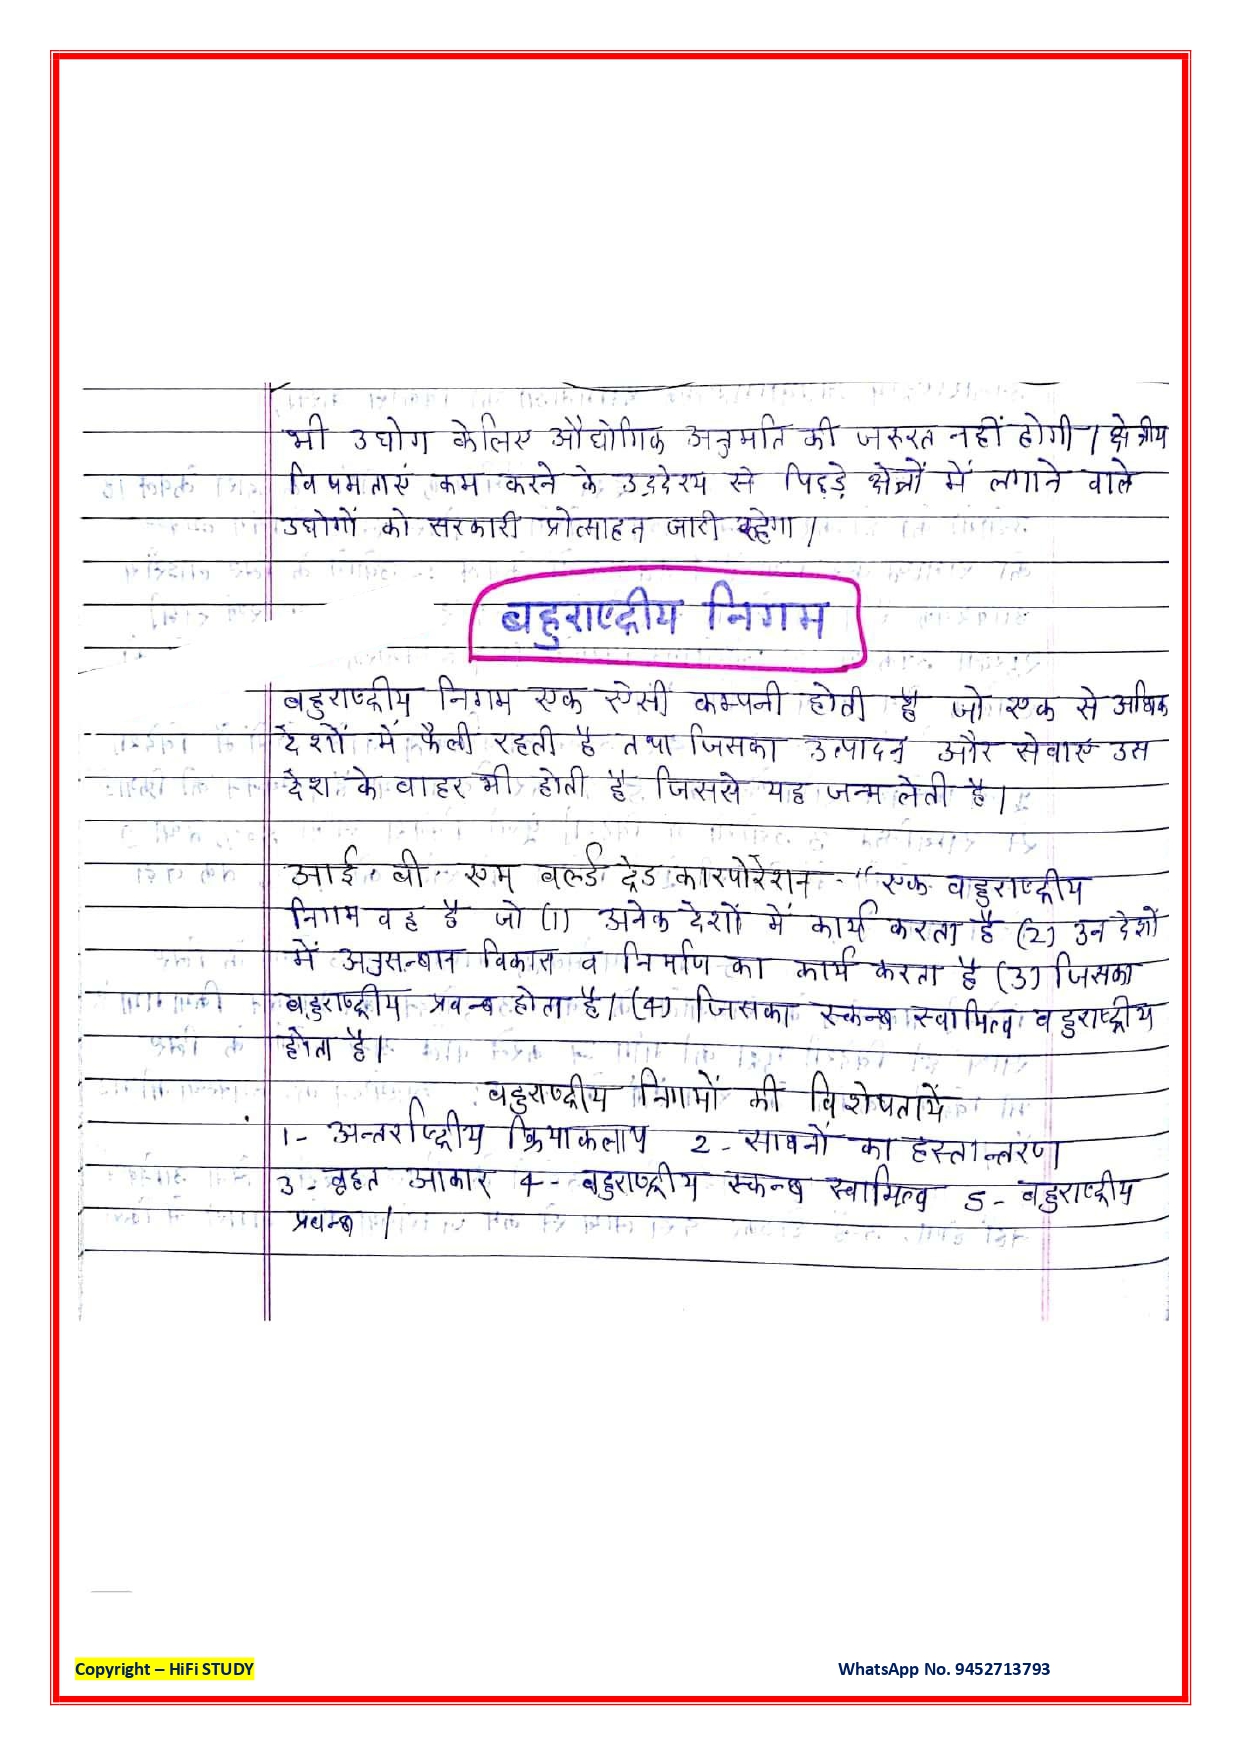 भी उद्योग के लिए औद्योगिक अनुमति की जरुरत नहीं होगी। क्षेत्रीय
विषमताएं कम करने के उद्देश्य से पिछड़े क्षेत्रों में लगाने वाले
उद्योगों को सरकारी प्रोत्साहन जारी रहेगा।
बहुराष्ट्रीय निगम
बहुराष्ट्रीय निगम एक ऐसी कम्पनी होती है जो एक से अधिक
देशों में फैली रहती है तथा जिसका उत्पादन और सेवाएं उस
देश के बाहर भी होती है जिससे यह जन्म लेती है।
आई. बी. एम वर्ल्ड ट्रेड कारपोरेशन - "एक बहुराष्ट्रीय
निगम वह है जो (1) अनेक देशों में कार्य करता है (2) उन देशों
में अनुसन्धान विकास व निर्माण का कार्य करता है (3) जिसका
बहुराष्ट्रीय प्रबन्ध होता है। (4) जिसका स्कन्ध स्वामित्व बहुराष्ट्रीय
होता है।
बहुराष्ट्रीय निगमों की विशेषतायें
1- अन्तर्राष्ट्रीय क्रियाकलाप 2- साधनों का हस्तान्तरण
3- वृहत आकार 4- बहुराष्ट्रीय स्कन्ध स्वामित्व 5- बहुराष्ट्रीय
प्रबन्ध।
Copyright – HiFi STUDY WhatsApp No. 9452713793